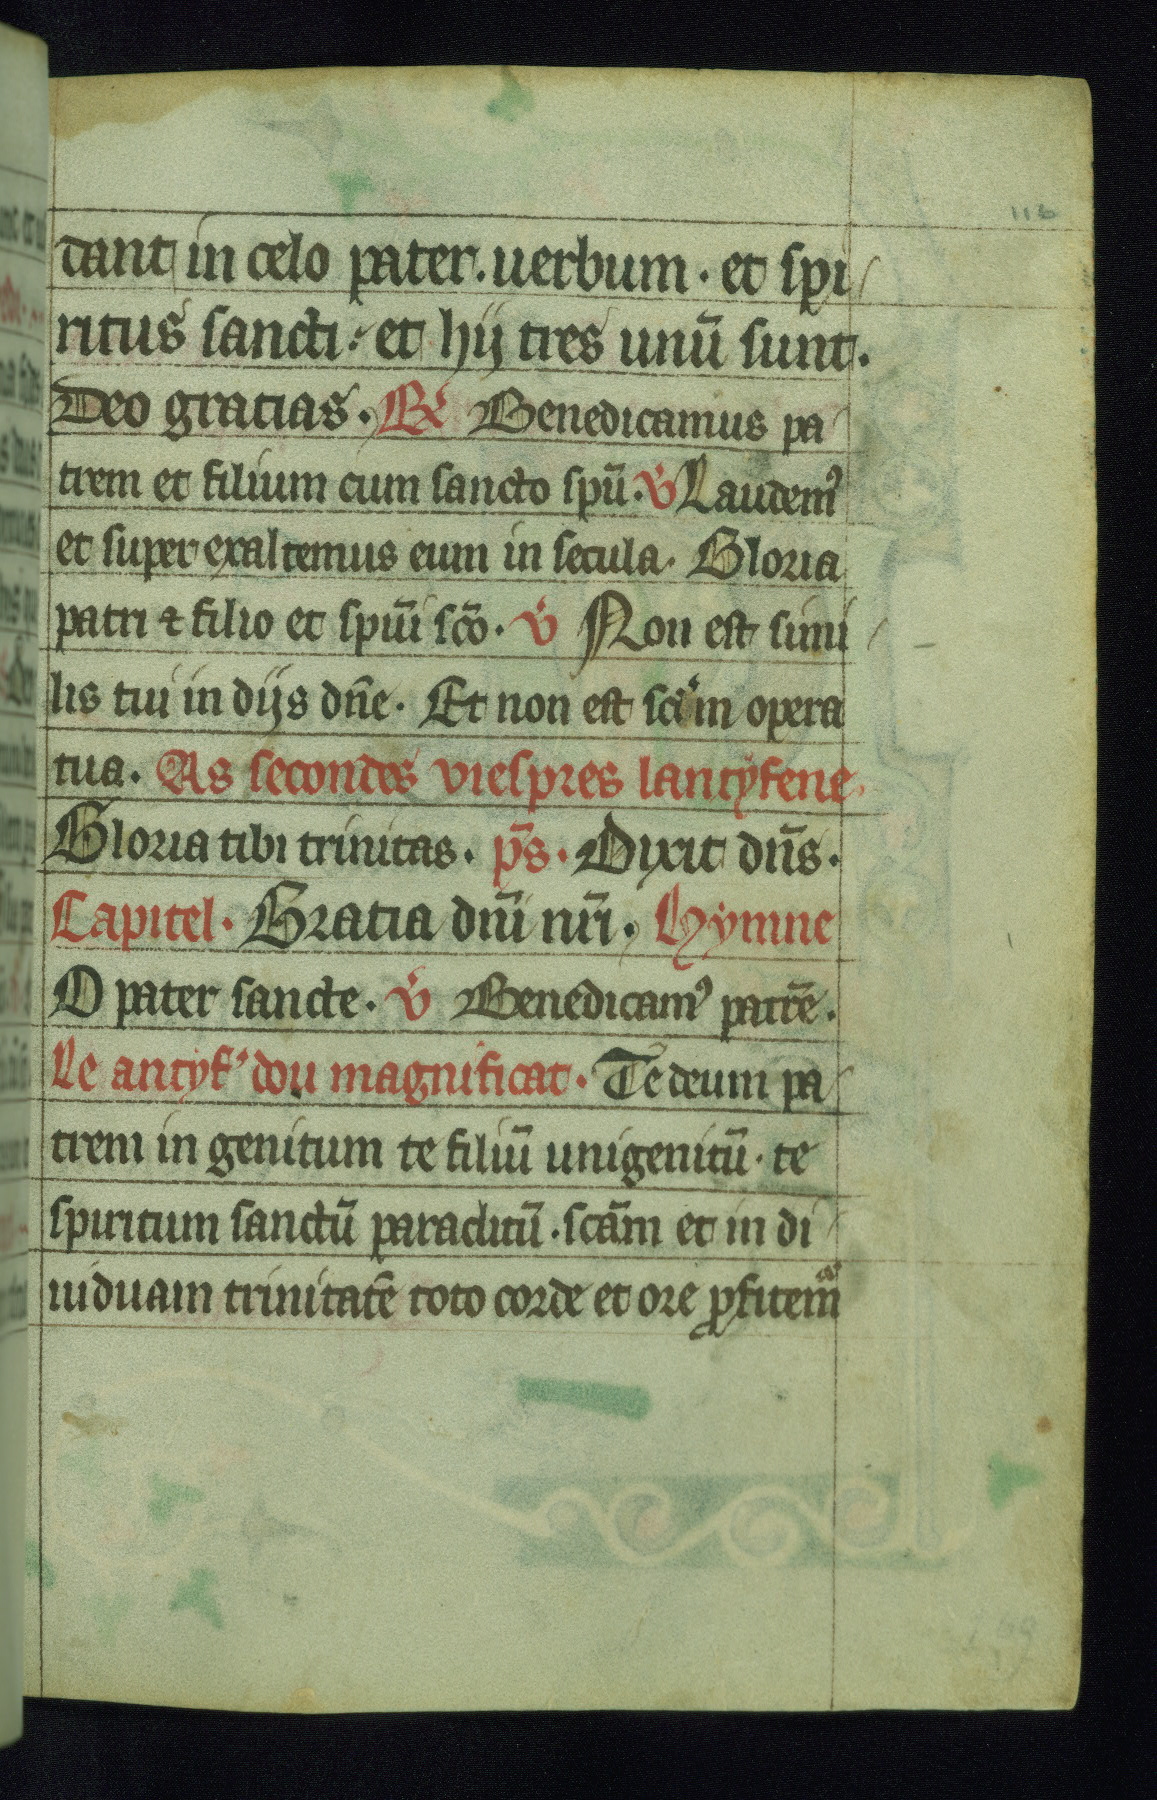 dant in celo pater. uerbum. et spi
ritus sancti. et hij tres unū sunt.
Deo gracias. R/ Benedicamus pa
trem et filium cum sancto spū. v Laudem9
et super exaltemus eum in secula. Gloria
patri ⁊ filio et spūi scō. v Non est simi
lis tui in dijs dn̄e. Et non est scd'm opera
tua. As secondes viespres lantyfene.
Gloria tibi trinitas. ps̄. Dixit dn̄s.
Capitel. Gratia dn̄i nr̄i. Hymne
O pater sancte. v Benedicam9 patrē.
Le antyf' dou magnificat. Te deum pa
trem in genitum te filiū unigenitū. te
spiritum sanctū paraclitū. scām et in di
uiduam trinitatē toto corde et ore ꝓfitem
116